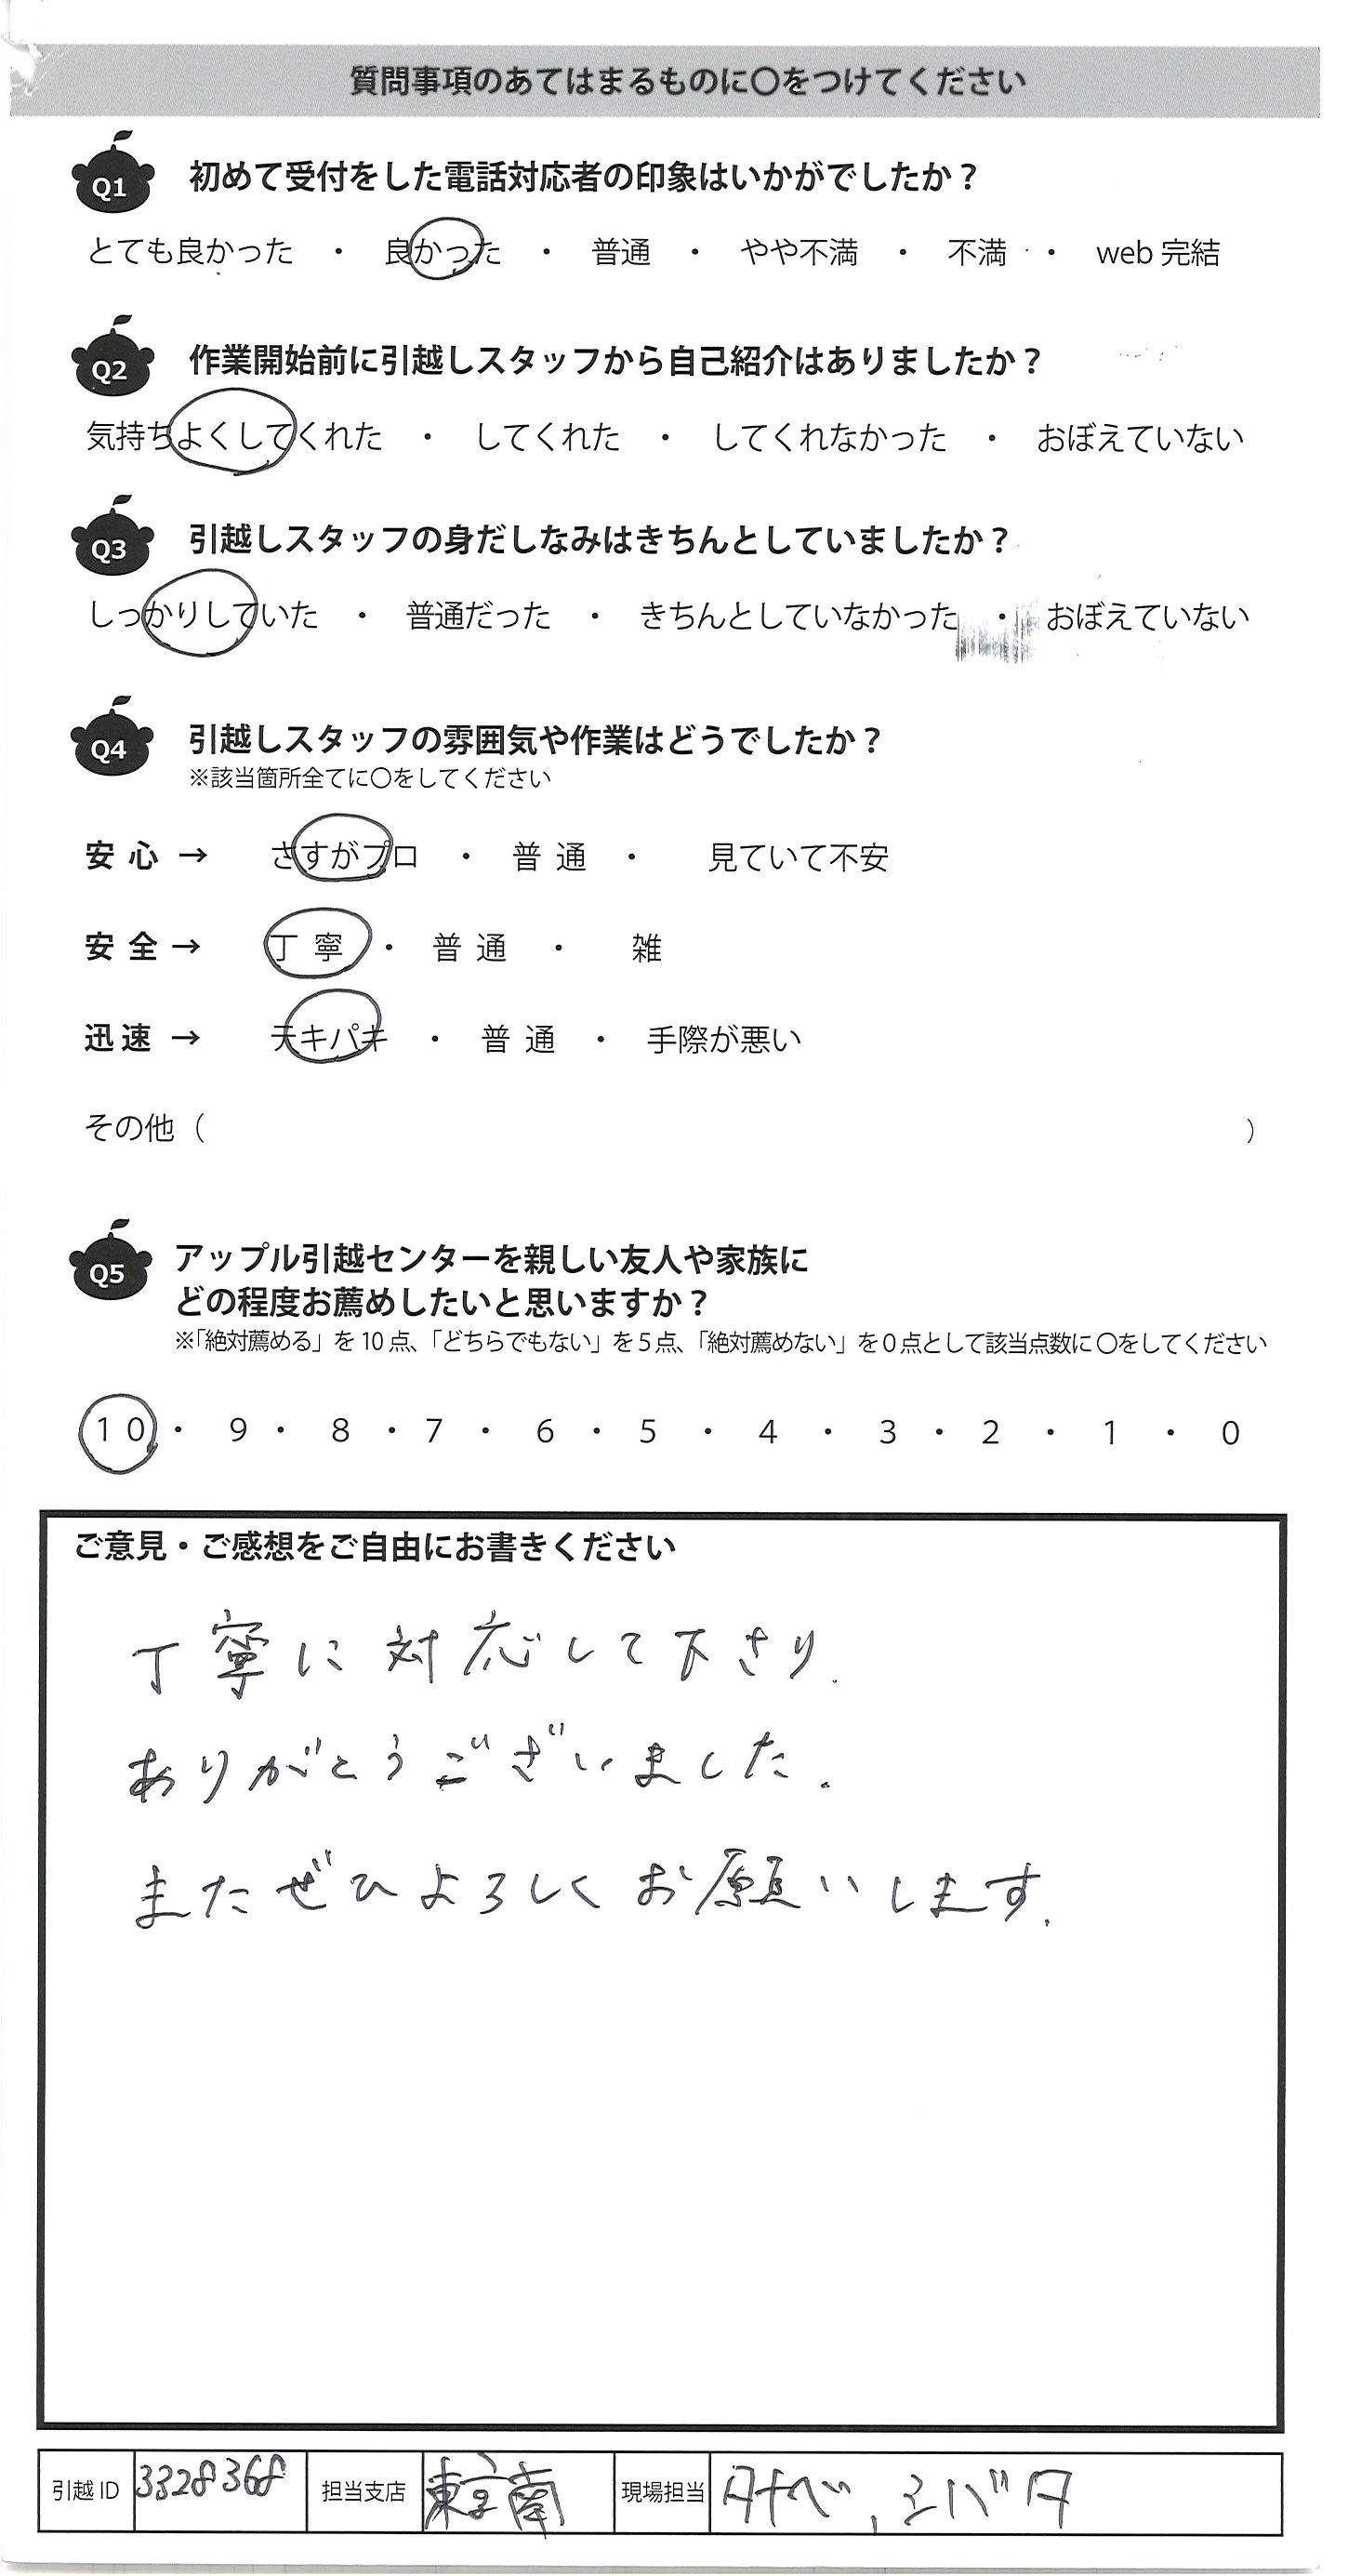 質問事項のあてはまるものに〇をつけてください
Q1 初めて受付をした電話対応者の印象はいかがでしたか？
とても良かった ・ 良かった ・ 普通 ・ やや不満 ・ 不満 ・ web 完結
Q2 作業開始前に引越しスタッフから自己紹介はありましたか？
気持ちよくしてくれた ・ してくれた ・ してくれなかった ・ おぼえていない
Q3 引越しスタッフの身だしなみはきちんとしていましたか？
しっかりしていた ・ 普通だった ・ きちんとしていなかった ・ おぼえていない
Q4 引越しスタッフの雰囲気や作業はどうでしたか？
※該当箇所全てに〇をしてください
安心 → さすがプロ ・ 普通 ・ 見ていて不安
安全 → 丁寧 ・ 普通 ・ 雑
迅速 → テキパキ ・ 普通 ・ 手際が悪い
その他（ ）
Q5 アップル引越センターを親しい友人や家族に
どの程度お薦めしたいと思いますか？
※「絶対薦める」を10点、「どちらでもない」を5点、「絶対薦めない」を0点として該当点数に〇をしてください
10 ・ 9 ・ 8 ・ 7 ・ 6 ・ 5 ・ 4 ・ 3 ・ 2 ・ 1 ・ 0
ご意見・ご感想をご自由にお書きください
丁寧に対応して下さり、
ありがとうございました。
またぜひよろしくお願いします。
引越ID 3328368 担当支店 東京南 現場担当 タナベ、シバタ